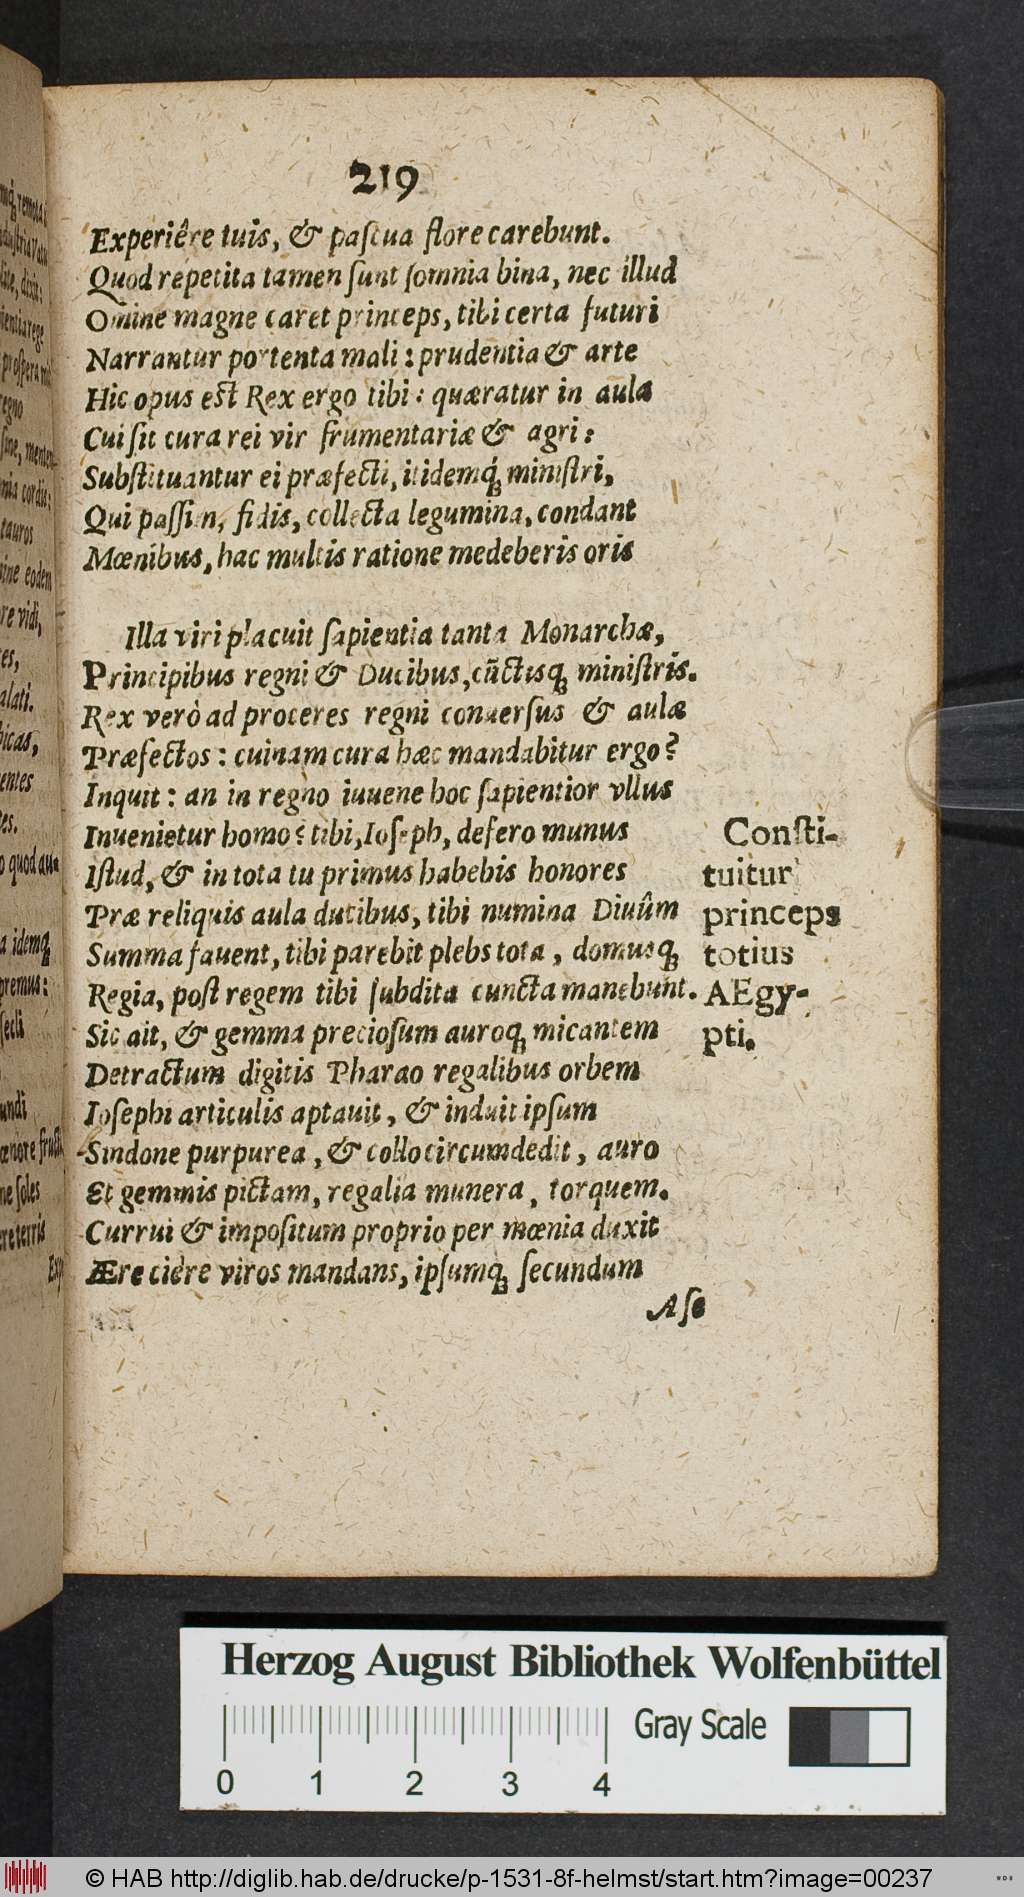 219
Experiêre tuis, & paſcua flore carebunt.
Quod repetita tamen ſunt ſomnia bina, nec illud
Omine magne caret princeps, tibi certa futuri
Narrantur portenta mali: prudentia & arte
Hic opus eſt Rex ergo tibi: quæratur in aula
Cui ſit cura rei vir frumentariæ & agri:
Subſtituantur ei præfecti, itidemq́; miniſtri,
Qui paſſim, fidis, collecta legumina, condant
Mœnibus, hac multis ratione medeberis oris
Illa viri placuit ſapientia tanta Monarchæ,
Principibus regni & Ducibus, cūctisq; miniſtris.
Rex verò ad proceres regni conuerſus & aulæ
Præfectos: cuinam cura hæc mandabitur ergo?
Inquit: an in regno iuuene hoc ſapientior vllus
Inuenietur homo? tibi, Ioſeph, defero munus
Iſtud, & in tota tu primus habebis honores
Præ reliquis aula ducibus, tibi numina Diuûm
Summa fauent, tibi parebit plebs tota, domusq;
Regia, poſt regem tibi ſubdita cuncta manebunt.
Sic ait, & gemma precioſum auroq; micantem
Detractum digitis Pharao regalibus orbem
Ioſephi articulis aptauit, & induit ipſum
Sindone purpurea, & collo circumdedit, auro
Et gemmis pictam, regalia munera, torquem.
Currui & impoſitum proprio per mœnia duxit
Ære ciêre viros mandans, ipſumq; ſecundum
Aſe
Conſti-
tuitur
princeps
totius
AEgy-
pti.
Herzog August Bibliothek Wolfenbüttel
0 1 2 3 4
Gray Scale
© HAB http://diglib.hab.de/drucke/p-1531-8f-helmst/start.htm?image=00237